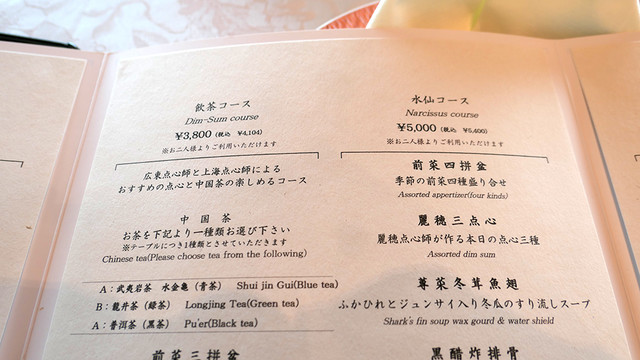 飲茶コース
Dim-Sum course
¥3,800 (税込 ¥4,104)
※お二人様よりご利用いただけます
広東点心師と上海点心師による
おすすめの点心と中国茶の楽しめるコース
中国茶
お茶を下記より一種類お選び下さい
※テーブルにつき1種類とさせていただきます
Chinese tea(Please choose tea from the following)
A:武夷岩茶 水金亀(青茶) Shui jin Gui(Blue tea)
B:龍井茶(緑茶) Longjing Tea(Green tea)
A:普洱茶(黒茶) Pu'er(Black tea)
前菜三拼盆
水仙コース
Narcissus course
¥5,000 (税込 ¥5,400)
※お二人様よりご利用いただけます
前菜四拼盆
季節の前菜四種盛り合せ
Assorted appertizer(four kinds)
麗穂三点心
麗穂点心師が作る本日の点心三種
Assorted dim sum
蓴菜冬茸魚翅
ふかひれとジュンサイ入り冬瓜のすり流しスープ
Shark's fin soup wax gourd & water shield
黒醋炸排骨